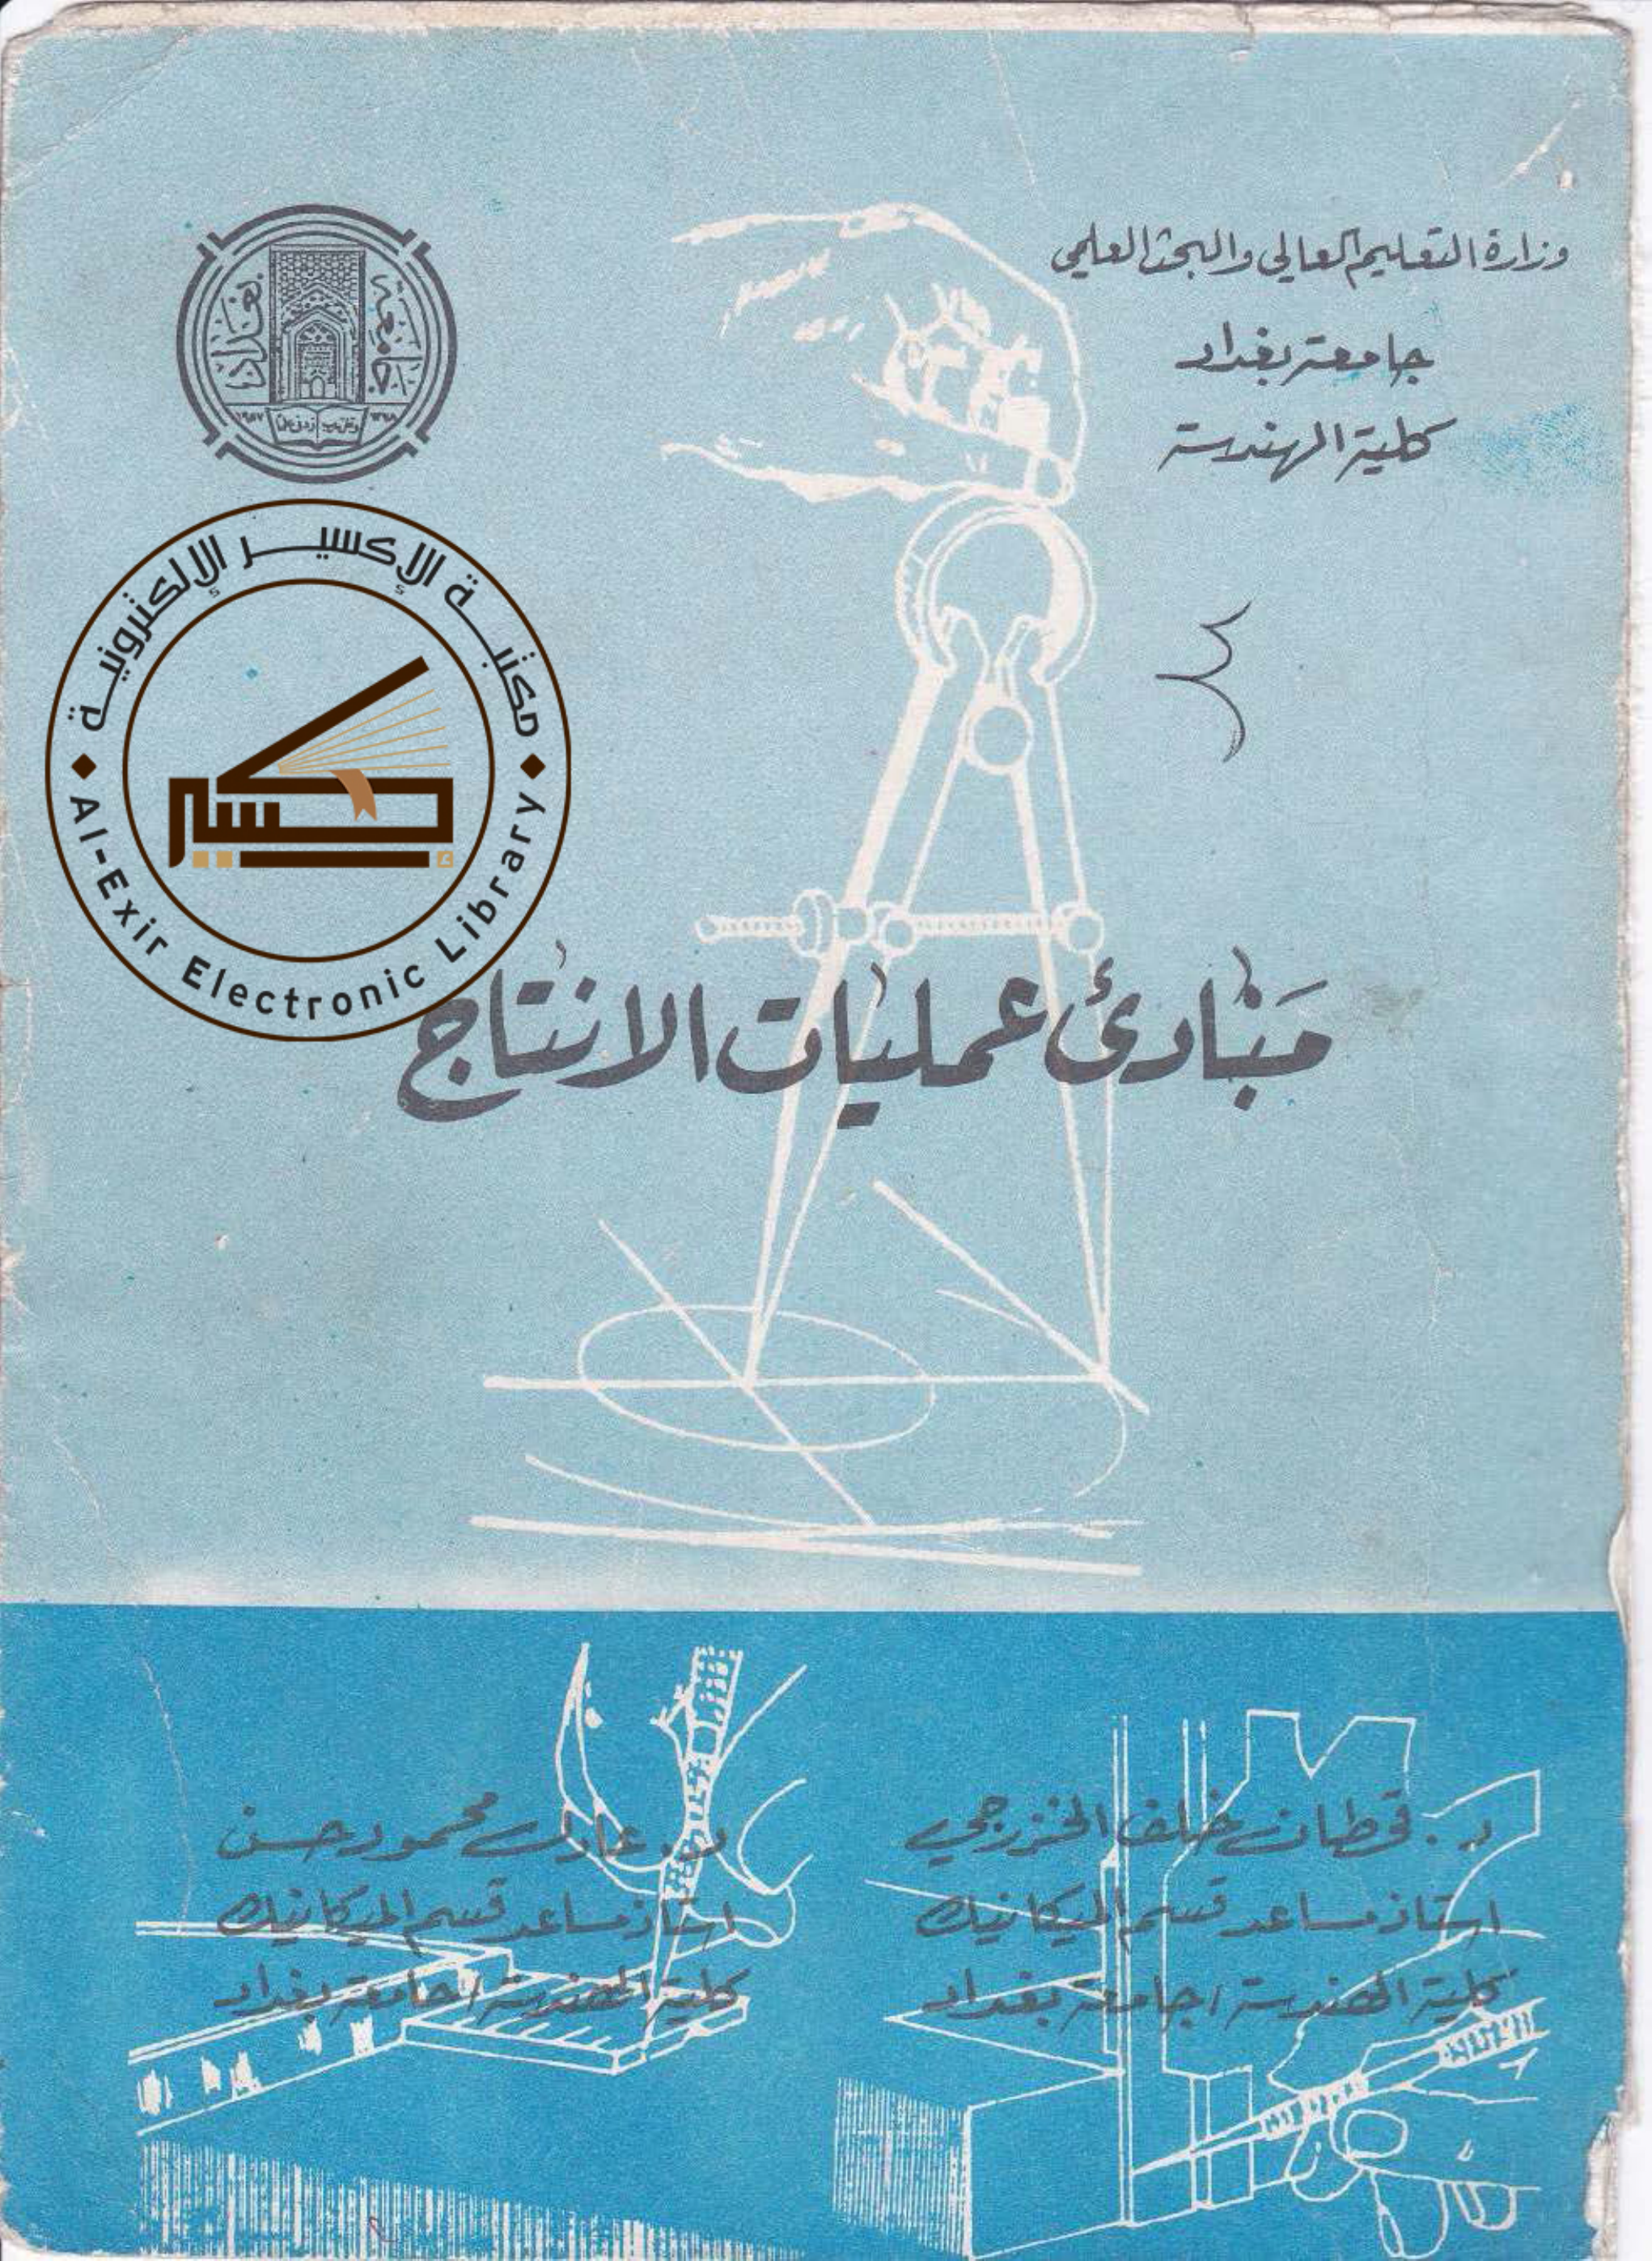 وزارة التعليم العالي والبحث العلمي
جامعة بغداد
كلية الهندسة
جامعة بغداد
وقل رب زدني علماً
مكتبة الإكسير الإلكترونية
إكسير
Al-Exir Electronic Library
مَبَادئ عمليات الانتاج
د. قحطان خلف الخزرجي
استاذ مساعد قسم الميكانيك
كلية الهندسة / جامعة بغداد
د. عادل محمود حسن
استاذ مساعد قسم الميكانيك
كلية الهندسة / جامعة بغداد